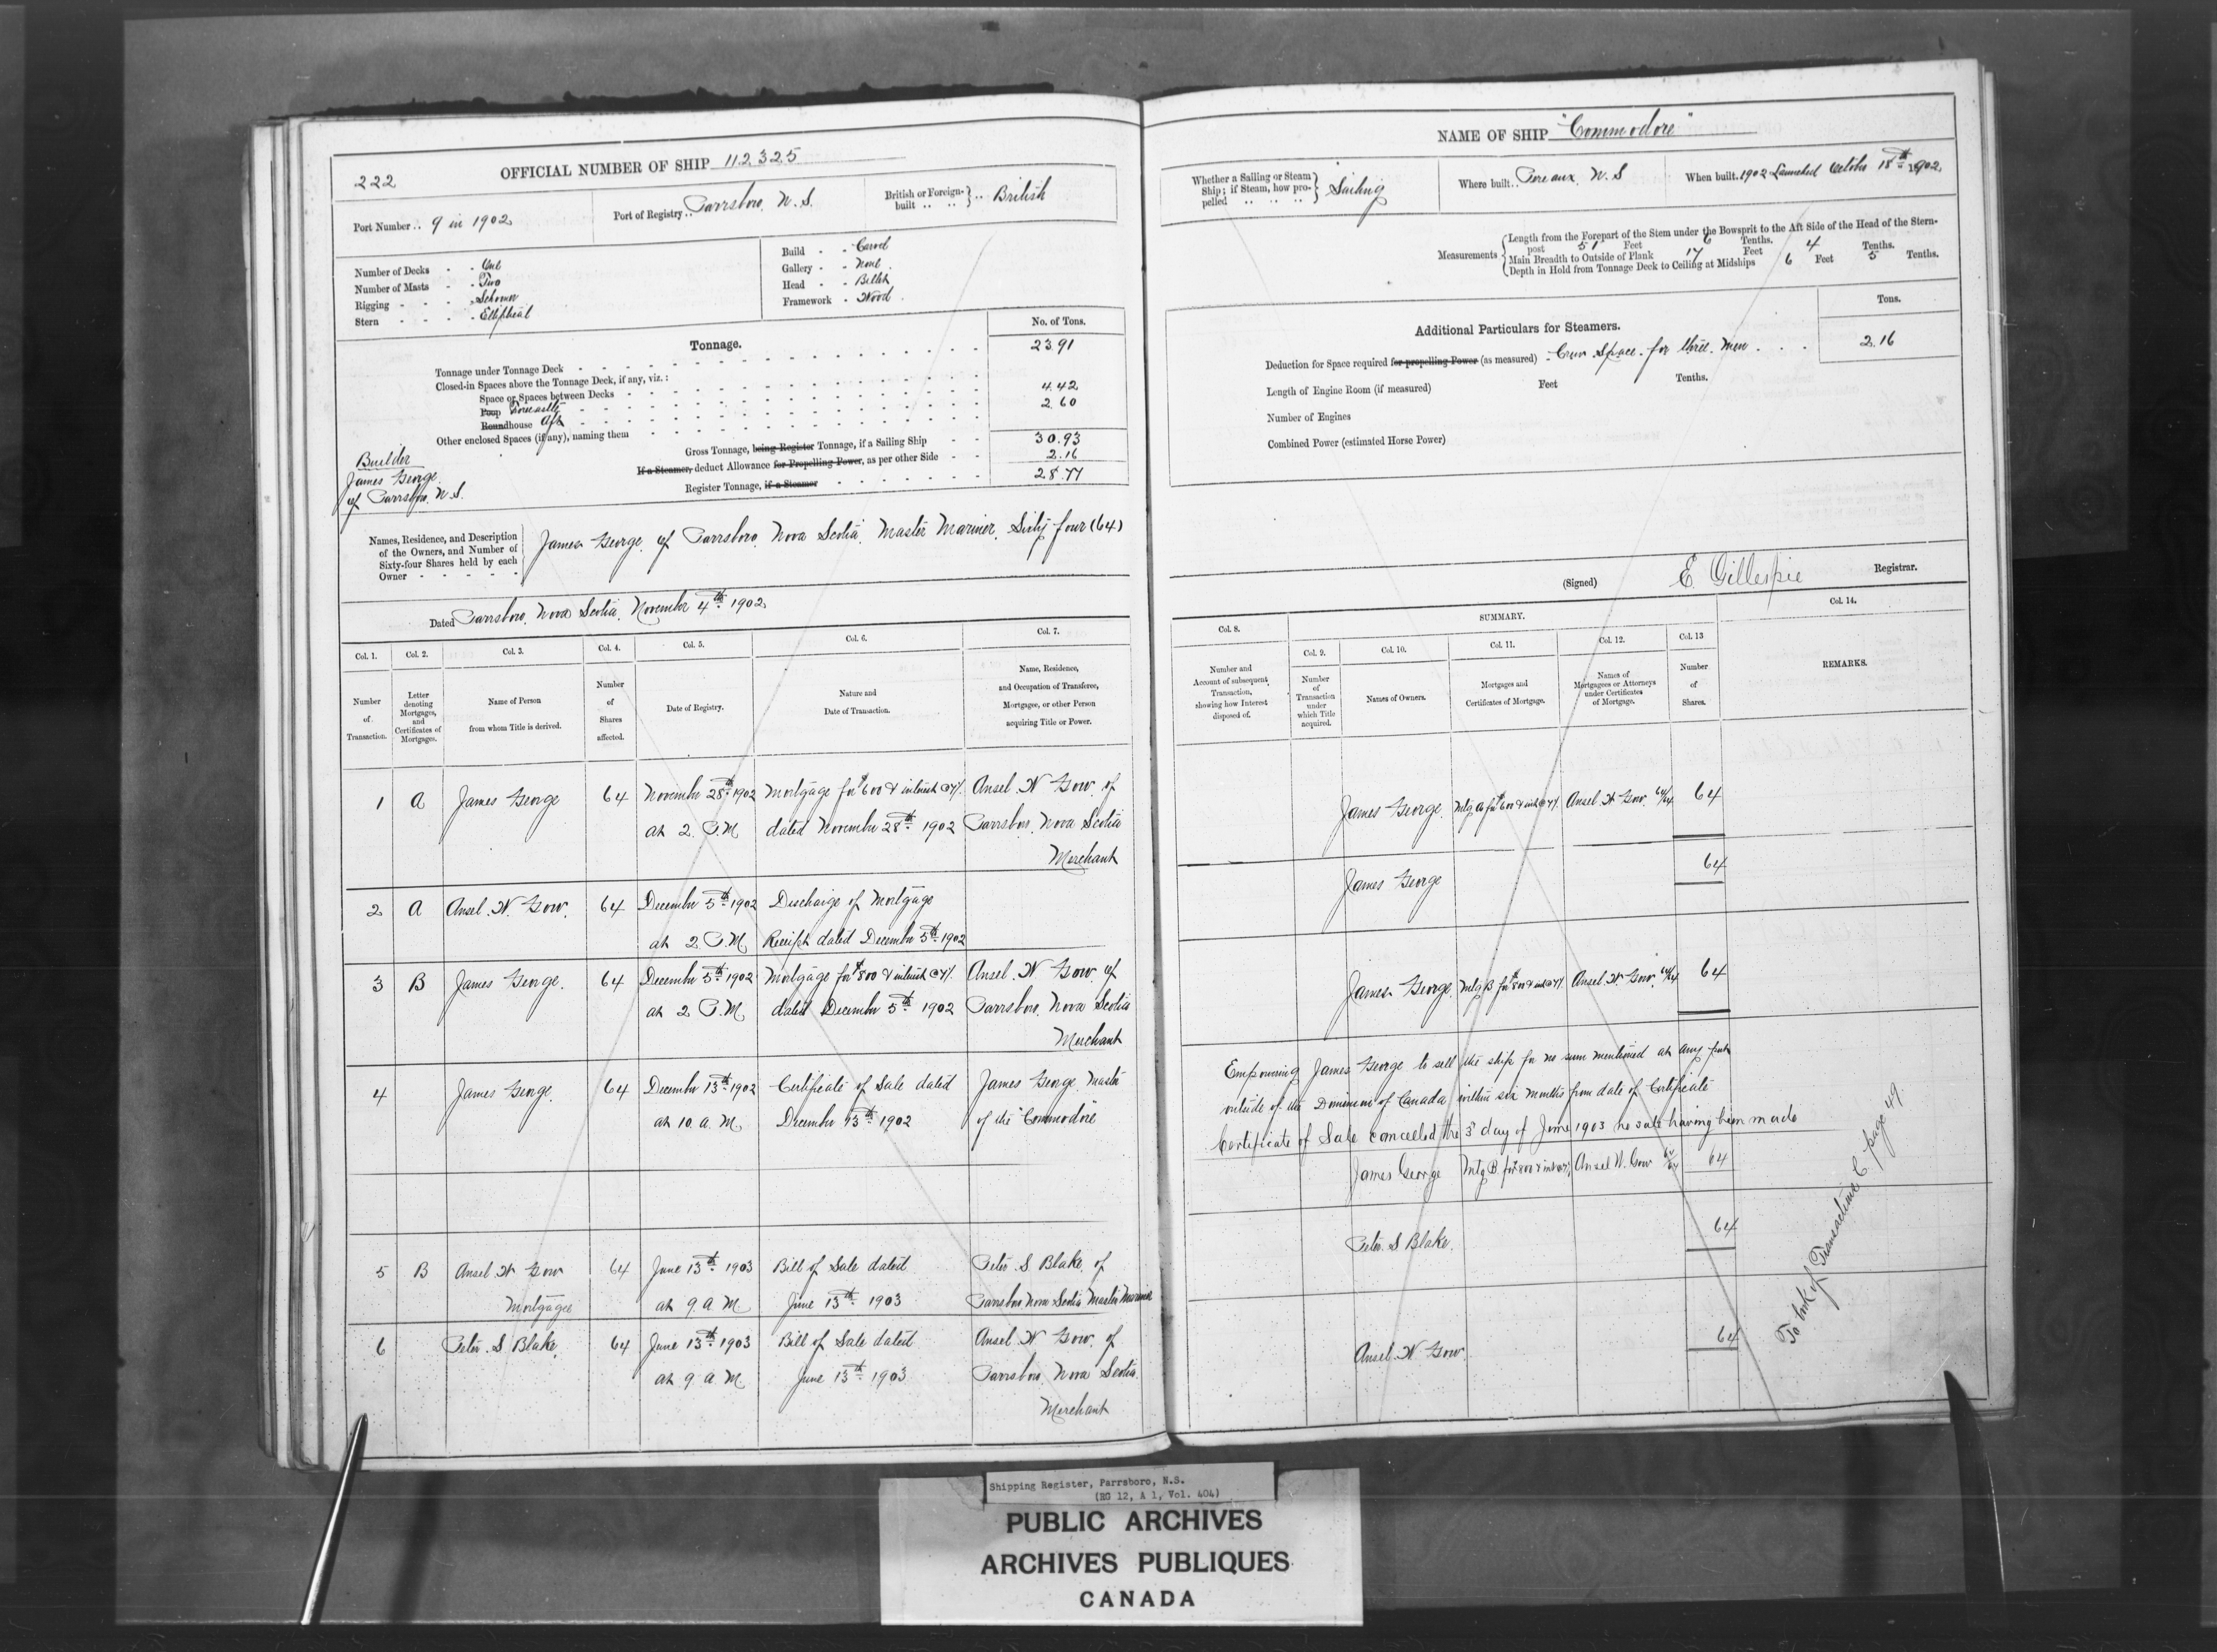 222
OFFICIAL NUMBER OF SHIP 112325
Port Number .. 9 in 1902
Port of Registry .. Parrsboro, N.S.
British or Foreign-built .. British
Number of Decks - - One
Number of Masts - - Two
Rigging - - - Schooner
Stern - - - - Elliptical
Build - - Carvel
Gallery - - None
Head - - Billet
Framework - Wood
Tonnage.
No. of Tons.
Tonnage under Tonnage Deck 23.91
Closed-in Spaces above the Tonnage Deck, if any, viz.:
Space or Spaces between Decks
Poop Forecastle 4.42
Roundhouse Aft 2.60
Other enclosed Spaces (if any), naming them
Gross Tonnage, being Register Tonnage, if a Sailing Ship 30.93
If a Steamer, deduct Allowance for Propelling Power, as per other Side 2.16
Register Tonnage, if a Steamer 28.77
Builder
James George
of Parrsboro, N.S.
Names, Residence, and Description of the Owners, and Number of Sixty-four Shares held by each Owner
James George of Parrsboro, Nova Scotia, Master Mariner, Sixty four (64)
Dated Parrsboro, Nova Scotia, November 4th 1902
Col. 1. Number of Transaction.
Col. 2. Letter denoting Mortgages, and Certificates of Mortgages.
Col. 3. Name of Person from whom Title is derived.
Col. 4. Number of Shares affected.
Col. 5. Date of Registry.
Col. 6. Nature and Date of Transaction.
Col. 7. Name, Residence, and Occupation of Transferee, Mortgagee, or other Person acquiring Title or Power.
1 A James George 64 November 28th 1902 Mortgage for $600 & interest @ 7% Ansel N Gow of
at 2 P.M dated November 28th 1902 Parrsboro, Nova Scotia
Merchant
2 A Ansel N. Gow. 64 December 5th 1902 Discharge of Mortgage
at 2 P.M. Receipt dated December 5th 1902
3 B James George. 64 December 5th 1902 Mortgage for $800 & interest @ 7% Ansel N Gow of
at 2 P.M. dated December 5th 1902 Parrsboro, Nova Scotia
Merchant
4 James George. 64 December 13th 1902 Certificate of Sale dated James George Master
at 10 a.M. December 13th 1902 of the "Commodore"
5 B Ansel N Gow 64 June 13th 1903 Bill of Sale dated Peter S Blake of
Mortgagee at 9 a M. June 13th 1903 Parrsboro Nova Scotia Master Mariner
6 Peter S Blake. 64 June 13th 1903 Bill of Sale dated Ansel N Gow of
at 9 a M. June 13th 1903 Parrsboro, Nova Scotia.
Merchant
NAME OF SHIP "Commodore"
Whether a Sailing or Steam Ship; if Steam, how propelled .. .. .. Sailing
Where built .. Pereaux, N.S
When built. 1902 Launched October 18th 1902
Measurements
Length from the Forepart of the Stem under the Bowsprit to the Aft Side of the Head of the Stern-
post 51 Feet 6 Tenths.
Main Breadth to Outside of Plank 17 Feet 4 Tenths.
Depth in Hold from Tonnage Deck to Ceiling at Midships 6 Feet 5 Tenths.
Additional Particulars for Steamers.
Tons.
Deduction for Space required for propelling Power (as measured) - Crew Space for three men 2.16
Length of Engine Room (if measured) Feet Tenths.
Number of Engines
Combined Power (estimated Horse Power)
(Signed) E Gillespie Registrar.
Col. 8. Number and Account of subsequent Transaction, showing how Interest disposed of.
SUMMARY.
Col. 9. Number of Transaction under which Title acquired.
Col. 10. Names of Owners.
Col. 11. Mortgages and Certificates of Mortgage.
Col. 12. Names of Mortgagees or Attorneys under Certificates of Mortgage.
Col. 13 Number of Shares.
Col. 14. REMARKS.
James George. Mtg A for $600 & int @ 7% Ansel N Gow. 64/64 64
James George 64
James George. Mtg B for $800 & int @ 7% Ansel N. Gow. 64/64 64
Empowering James George to sell the ship for no sum mentioned at any port
outside of the Dominion of Canada within six months from date of Certificate
Certificate of Sale cancelled the 3d day of June 1903 no sale having been made
James George Mtg B for $800 & int @ 7% Ansel N. Gow 64/64 64
Peter S Blake. 64
Ansel N. Gow. 64
To book of Transactions C. page 49
Shipping Register, Parrsboro, N.S.
(RG 12, A 1, Vol. 404)
PUBLIC ARCHIVES
ARCHIVES PUBLIQUES
CANADA